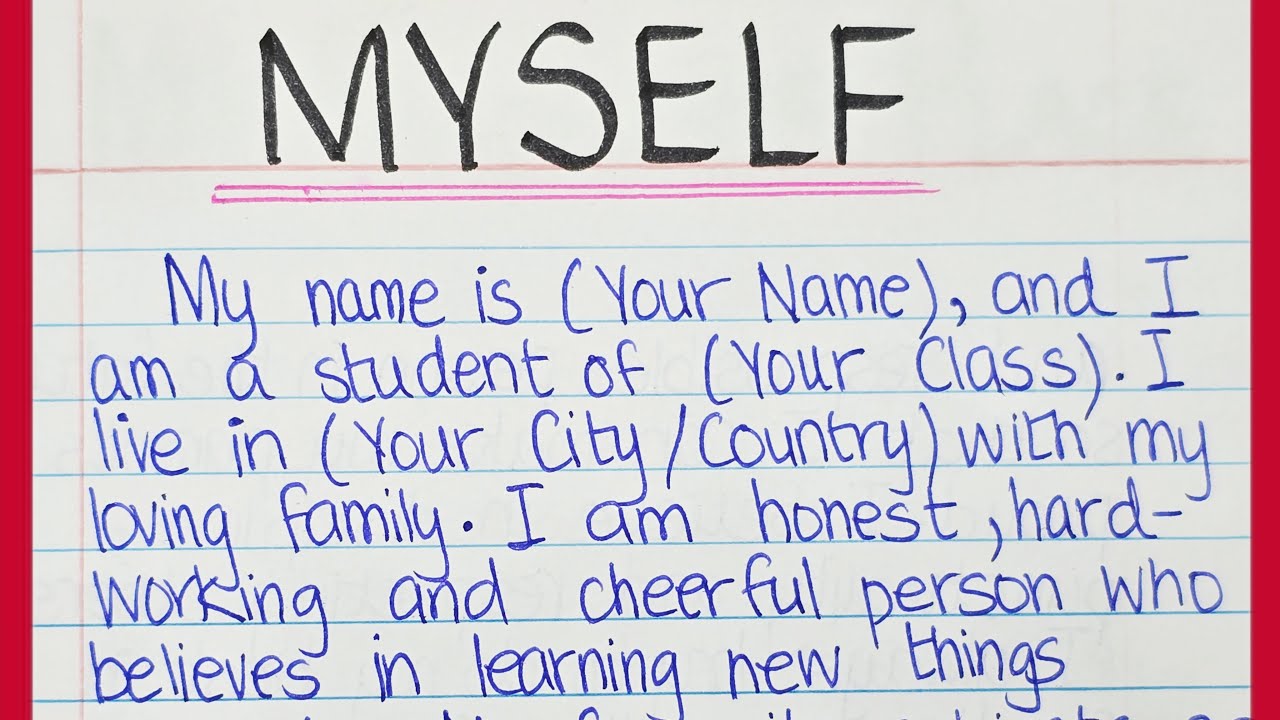 MYSELF
My name is (Your Name), and I
am a student of (Your Class). I
live in (Your City/Country) with my
loving family. I am honest, hard-
working and cheerful person who
believes in learning new things